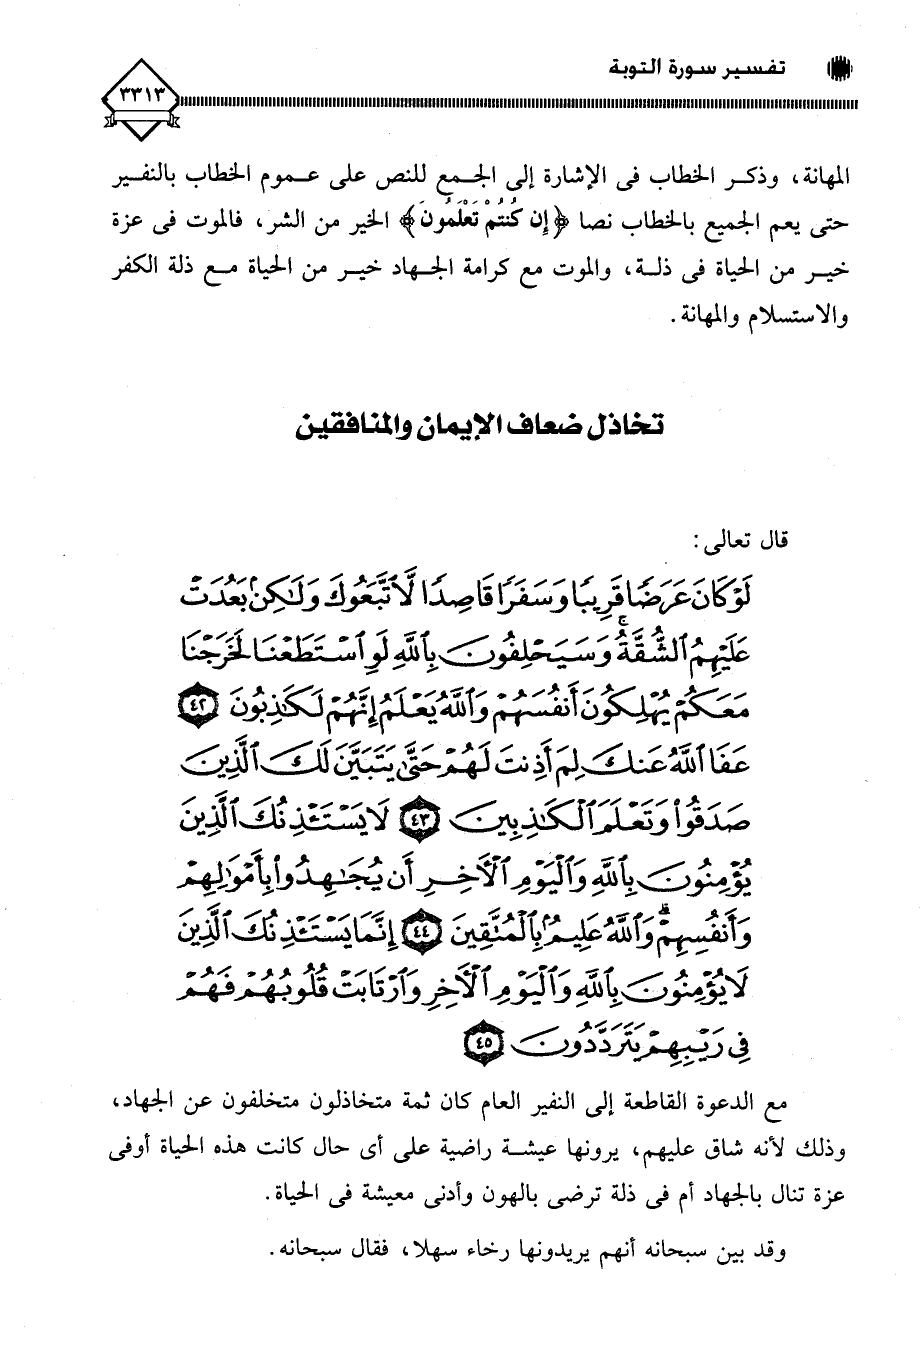 تفسير سورة التوبة
٣٣١٣
المهانة، وذكر الخطاب فى الإشارة إلى الجمع للنص على عموم الخطاب بالنفير
حتى يعم الجميع بالخطاب نصا ﴿إِن كُنتُمْ تَعْلَمُونَ﴾ الخير من الشر، فالموت فى عزة
خير من الحياة فى ذلة، والموت مع كرامة الجهاد خير من الحياة مع ذلة الكفر
والاستسلام والمهانة.
تخاذل ضعاف الإيمان والمنافقين
قال تعالى:
لَوْ كَانَ عَرَضًا قَرِيبًا وَسَفَرًا قَاصِدًا لَّاتَّبَعُوكَ وَلَٰكِنۢ بَعُدَتْ
عَلَيْهِمُ ٱلشُّقَّةُ ۚ وَسَيَحْلِفُونَ بِٱللَّهِ لَوِ ٱسْتَطَعْنَا لَخَرَجْنَا
مَعَكُمْ يُهْلِكُونَ أَنفُسَهُمْ وَٱللَّهُ يَعْلَمُ إِنَّهُمْ لَكَٰذِبُونَ ٤٢
عَفَا ٱللَّهُ عَنكَ لِمَ أَذِنتَ لَهُمْ حَتَّىٰ يَتَبَيَّنَ لَكَ ٱلَّذِينَ
صَدَقُوا۟ وَتَعْلَمَ ٱلْكَٰذِبِينَ ٤٣ لَا يَسْتَـْٔذِنُكَ ٱلَّذِينَ
يُؤْمِنُونَ بِٱللَّهِ وَٱلْيَوْمِ ٱلْـَٔاخِرِ أَن يُجَٰهِدُوا۟ بِأَمْوَٰلِهِمْ
وَأَنفُسِهِمْ ۗ وَٱللَّهُ عَلِيمٌۢ بِٱلْمُتَّقِينَ ٤٤ إِنَّمَا يَسْتَـْٔذِنُكَ ٱلَّذِينَ
لَا يُؤْمِنُونَ بِٱللَّهِ وَٱلْيَوْمِ ٱلْـَٔاخِرِ وَٱرْتَابَتْ قُلُوبُهُمْ فَهُمْ
فِى رَيْبِهِمْ يَتَرَدَّدُونَ ٤٥
مع الدعوة القاطعة إلى النفير العام كان ثمة متخاذلون متخلفون عن الجهاد،
وذلك لأنه شاق عليهم، يرونها عيشة راضية على أى حال كانت هذه الحياة أوفى
عزة تنال بالجهاد أم فى ذلة ترضى بالهون وأدنى معيشة فى الحياة.
وقد بين سبحانه أنهم يريدونها رخاء سهلا، فقال سبحانه.